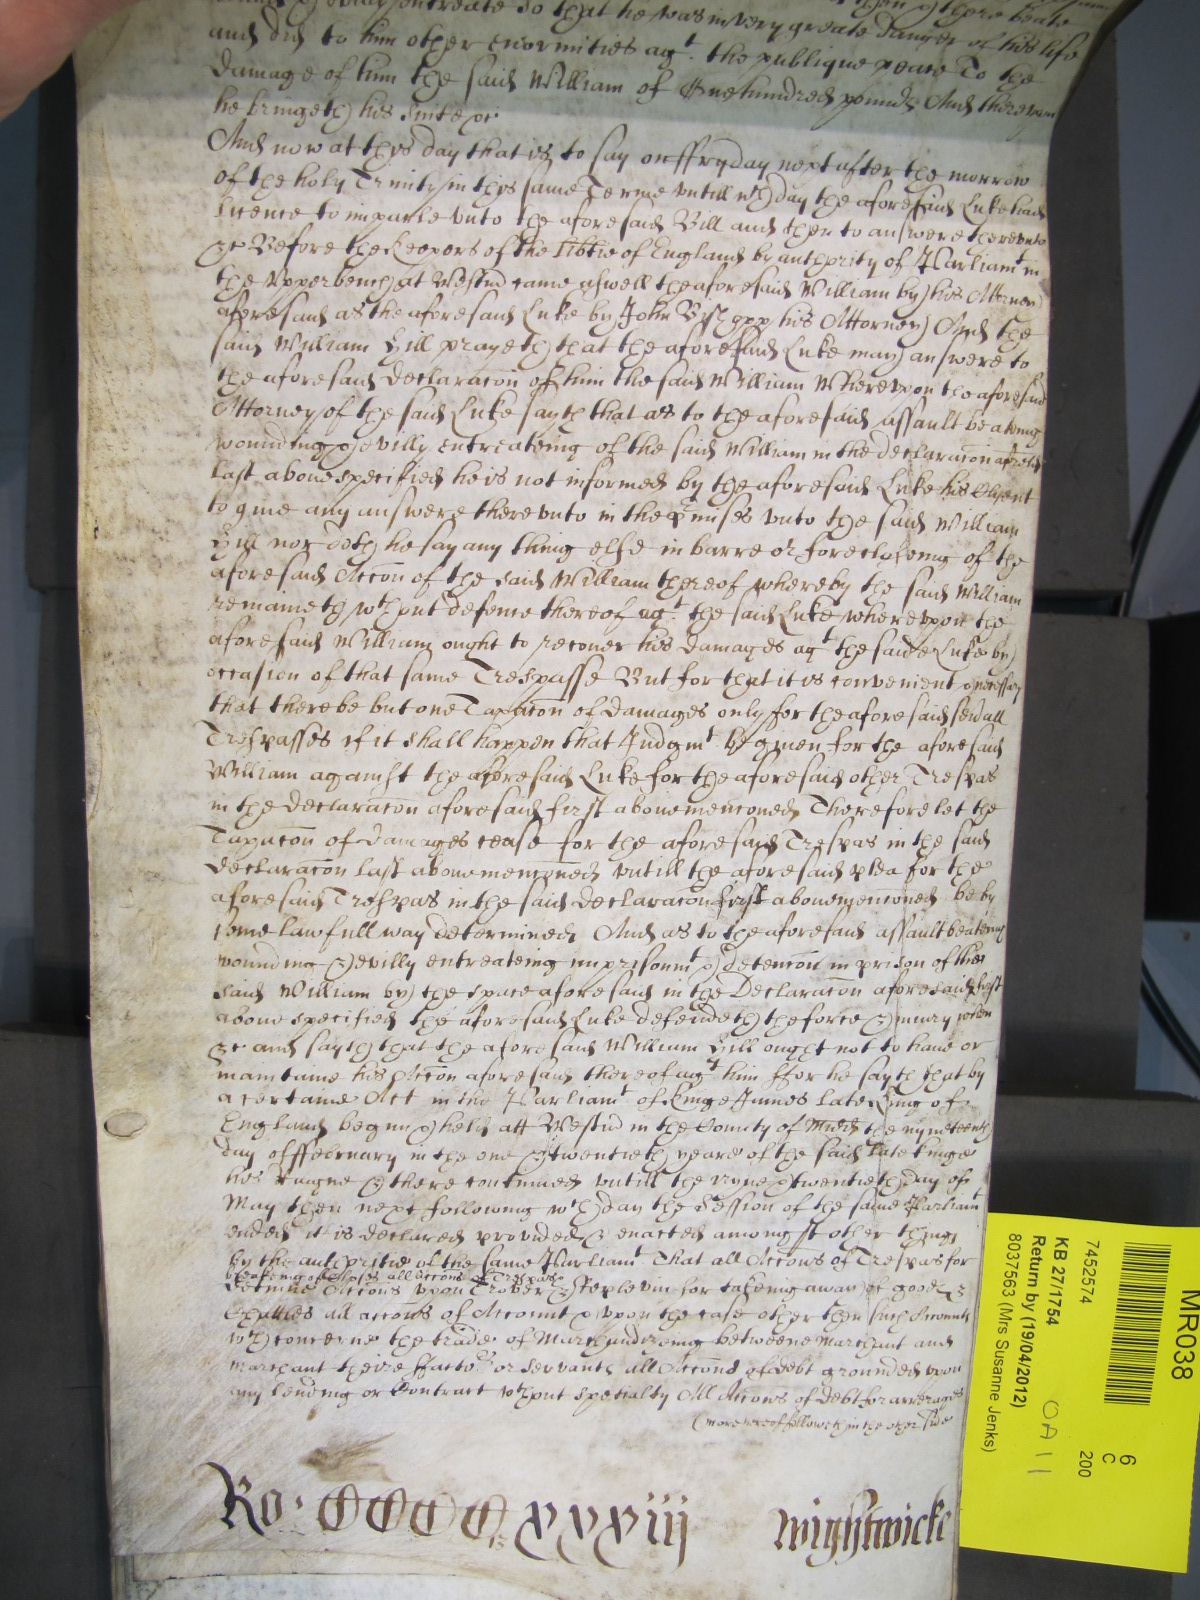 entreate so that he was in very greate danger of his life
and did to him other enormities agt. the publique peace To the
damage of him the said William of One hundred pounds And thereupon
he bringeth his suite &c
And now at this day that is to say on ffryday next after the morrow
of the holy Trinity in this same Terme untill wch day the aforesaid Luke had
licence to imparle unto the aforesaid Bill and then to answere thereunto
&c Before the Keepers of the libtie of England by authority of Parliamt in
the Upper bench at Westm came aswell the aforesaid William by his Attorney
aforesaid as the aforesaid Luke by John his Attorney And the
said William Hill prayeth that the aforesaid Luke may answere to
the aforesaid declaracon of him the said William Whereupon the aforesaid
Attorney of the said Luke sayth that as to the aforesaid assault beateing
wounding & evilly entreateing of the said William in the declaracon aforesaid
last above specified he is not informed by the aforesaid Luke his Clyent
to give any answere thereunto in the pmises unto the said William
Hill nor doth he say any thing else in barre or forecloseing of the
aforesaid Accon of the said William thereof whereby the said William
remaineth wthout defence thereof agt. the said Luke whereupon the
aforesaid William ought to recover his damages agt the saide Luke by
occasion of that same Trespasse But for that it is convenient & necessary
that there be but one Taxacon of damages only for the aforesaid sevall
Trespasses if it shall happen that Judgmt be given for the aforesaid
William against the aforesaid Luke for the aforesaid other Trespas
in the declaracon aforesaid first above menconed Therefore let the
Taxacon of damages cease for the aforesaid Trespas in the said
declaracon last above menconed untill the aforesaid plea for the
aforesaid Trespas in the said declaracon first above menconed be by
some lawfull way determined And as to the aforesaid assault beateing
wounding & evilly entreateing imprisonmt & detencon in prison of the
said William by the space aforesaid in the Declaracon aforesaid first
above specified the aforesaid Luke defendeth the force & iniury when
&c and sayth that the aforesaid William Hill ought not to have or
maintaine his Accon aforesaid thereof agt him ffor he sayth that by
a certaine Act in the Parliamt of Kinge James late King of
England begun & held att Westm in the County of Midd the nyneteenth
day of ffebruary in the one & twentieth yeare of the said late kinge
his Raigne & there continued untill the nyne & twentieth day of
May then next following wch day the Session of the same Parliamt
ended it is declared provided & enacted amongst other things
by the authoritie of the same Parliamt That all Accons of Trespas for
breaking of Closes all accons of Trespas
detinue Accons uppon Trover & Replevin for takeing away of goods &
Chattles all accons of Account & uppon the case other then such Accounts
wch concerne the trade of Marchandizeing betweene Marchant and
marchant theire ffactors or servants all Accons of debt grounded uppon
any lending or Contract wthout specialty All Accons of debt for arrerages
(more hereof followeth in the other side
Ro: CCCC xxxiij Wightwicke
MR038
7452574
KB 27/1754
Return by (19/04/2012)
8037563 (Mrs Susanne Jenks)
6
C
200
OA 11